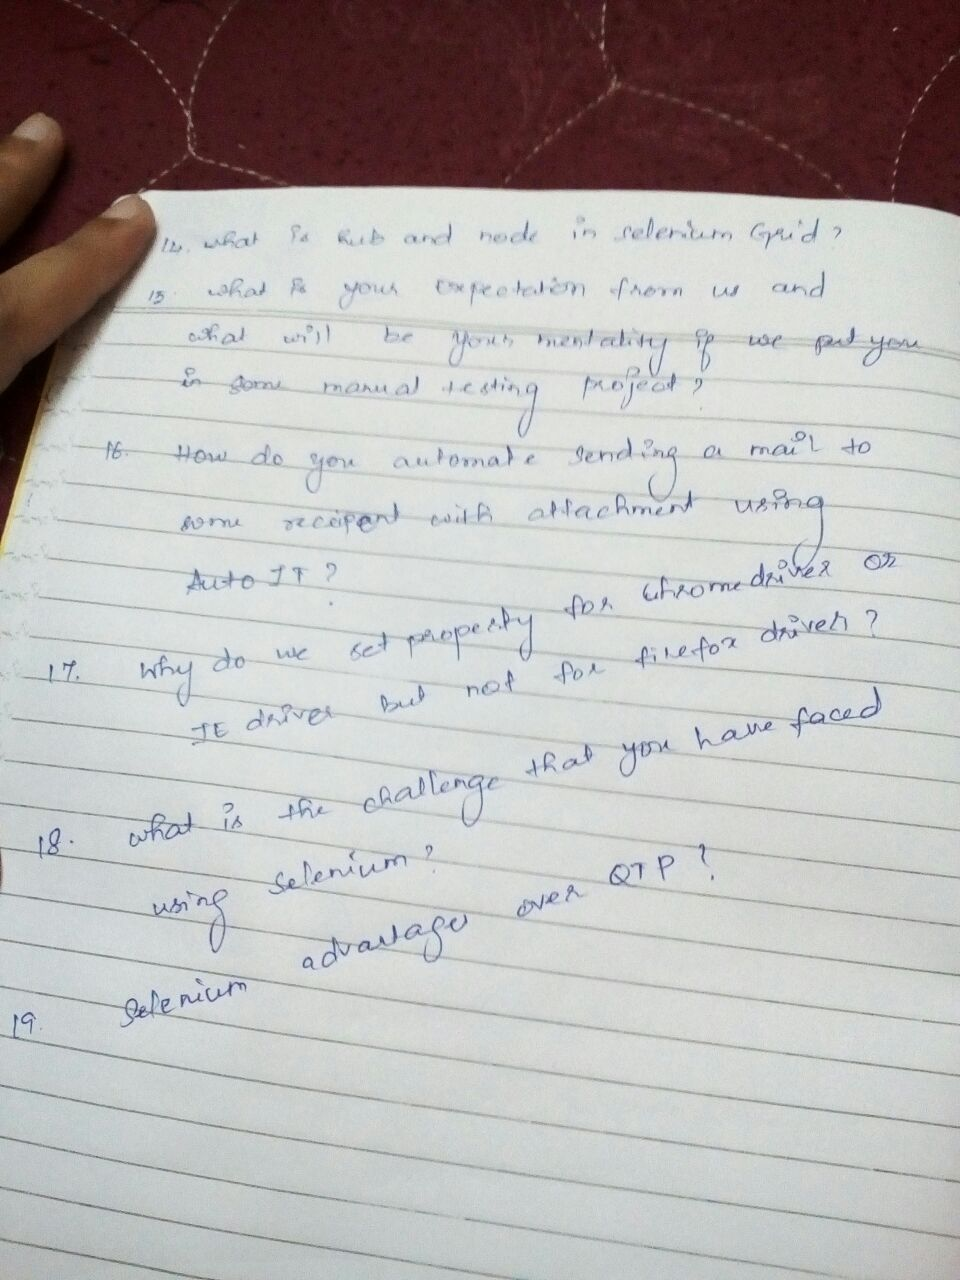 14. what is hub and node in selenium Grid?
15. what is your expectation from us and
what will be your mentality if we put you
in some manual testing project?
16. How do you automate sending a mail to
some recipent with attachment using
Auto IT?
17. why do we set property for chromedriver or
IE driver but not for firefox driver?
18. what is the challenge that you have faced
using selenium?
19. Selenium advantages over QTP?